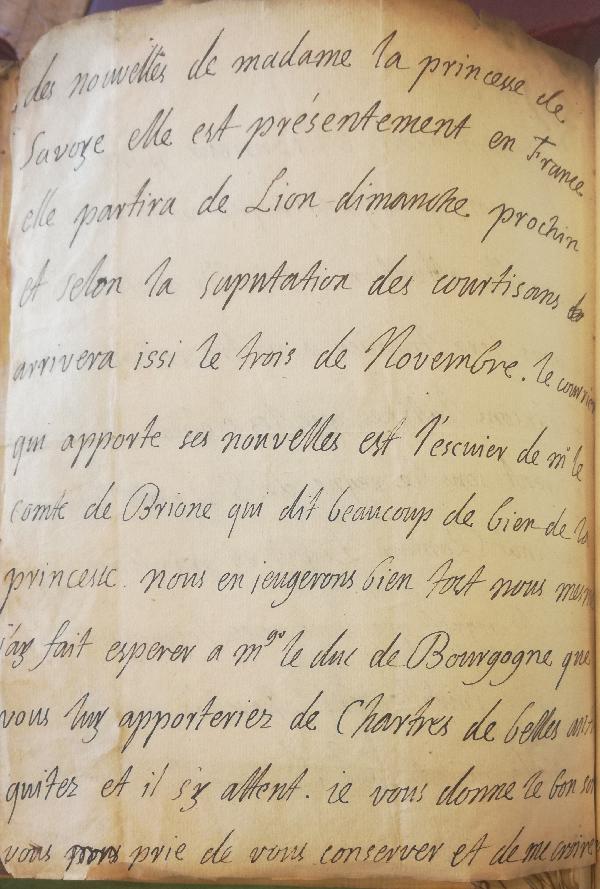 des nouvelles de madame la princesse de
Savoye elle est présentement en France
elle partira de Lion dimanche prochin
et selon la suputation des courtisans
arrivera issi le trois de Novembre. le courrier
qui apporte ses nouvelles est l'escuier de mr le
comte de Brione qui dit beaucoup de bien de la
princesse. nous en jeugerons bien tost nous mesme
j'ay fait esperer a mgr le duc de Bourgogne que
vous luy apporteriez de Chartres de belles anti
quitez et il s'y attent. ie vous donne le bon soir
vous prie de vous conserver et de me croire